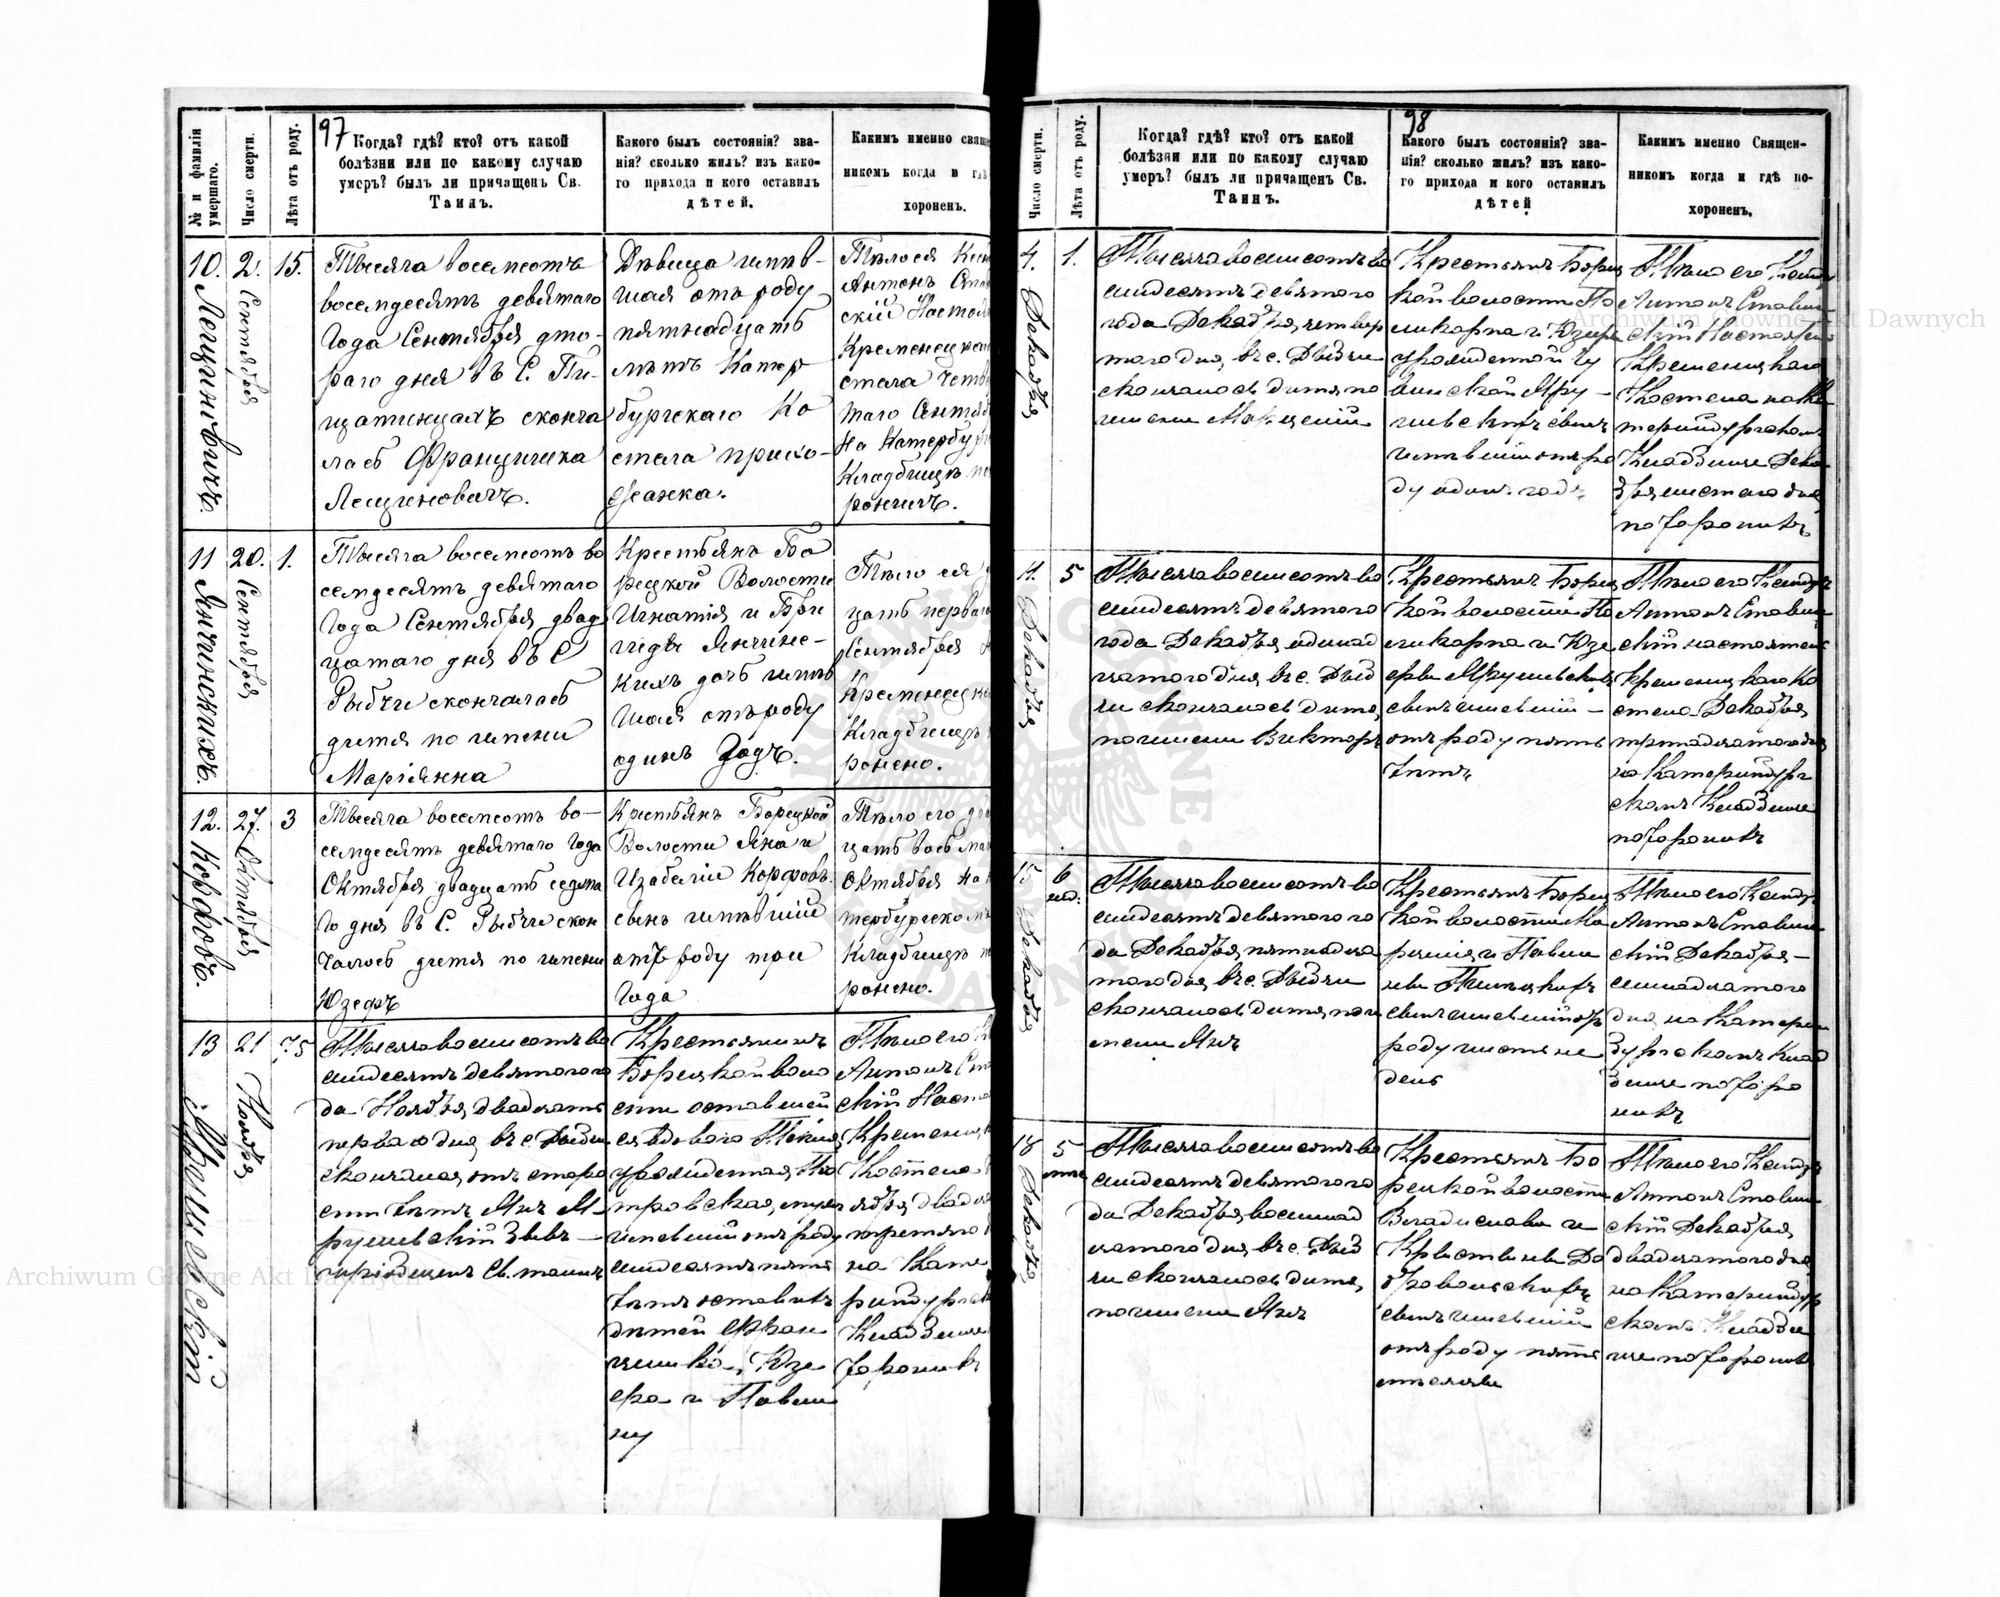 97
№ и фамилія умершаго.
Число смерти.
Лѣта отъ роду.
Когда? гдѣ? кто? отъ какой
болѣзни или по какому случаю
умеръ? былъ ли причащенъ Св.
Таинъ.
Какого былъ состоянія? зва-
нія? сколько жилъ? изъ како-
го прихода и кого оставилъ
дѣтей.
Какимъ именно свяще
никомъ когда и гдѣ
хороненъ.
10. Лещиновичъ.
2. Сентября
15.
Тысяча восемсотъ
восемдесятъ девятаго
Года Сентября вто-
раго дня въ С. Пи-
щатинцахъ сконча
лась Францишка
Лещиновичъ.
Дѣвица живѣ-
шая отъ роду
пятнадцать
лѣтъ Катер
бургскаго Ко
стела прихо-
жанка.
Тѣло ея Ксен
Антонъ Став
скій Настоя
Кременецкаго
стела Четве
таго Сентяб
на Катербу
Кладбищѣ по
роненъ.
11 Янчинскихъ.
20. Сентября
1.
Тысяча восемсотъ во
семдесятъ девятаго
Года Сентября двад
цатаго дня въ С
Рыдчи скончалась
дитя по имени
Маріянна
Крестьянъ Бо
рецкой Волости
Игнатія и Бри
гиды Янчинс-
кихъ дочь живѣ
шая отъ роду
одинъ Годъ.
Тѣло ея д
цать перваго
Сентября н
Кременецко
Кладбищѣ
ронено.
12. Корфовъ.
27. Октября
3
Тысяча восемсотъ во-
семдесятъ девятаго Года
Октября двадцать седьма
го дня въ С. Рыдчи скон
чалось дитя по имени
Юзефъ
Крестьянъ Борецкой
Волости Яна и
Изабеліи Корфовъ.
сынъ живѣшій
отъ роду три
Года
Тѣло его два
цать восьма
Октября на К
тербургскомъ
Кладбищѣ п
ронено.
13 Мрушевскій
21 Ноября
75
Тысяча восемсотъ во
семдесятъ девятого го
да Ноября двадцать
перваго дня, въ с. Рыдчи
скончался, отъ старо
сти лѣтъ Янъ М-
рушевскій
Св. таинъ
Крестьянинъ
Борецкой воло
сти оставшей
ся вдового Текля
урожденная, По
тровская,
живший отъ роду
семдесятъ пять
лѣтъ оставивъ
дѣтей Фран
цишка, Юзе
фа и Павли
ну
Тѣло его К
Антонъ Ст
скій Насто
Кременецк
Костела
ября двадца
третяго
на Кате
ринбургск
Кладбище
хоронивъ
98
Число смерти.
Лѣта отъ роду.
Когда? гдѣ? кто? отъ какой
болѣзни или по какому случаю
умеръ? былъ ли причащенъ Св.
Таинъ.
Какого былъ состоянія? зва-
нія? сколько жилъ? изъ како-
го прихода и кого оставилъ
дѣтей
Какимъ именно Священ-
никомъ когда и гдѣ по-
хороненъ.
4. Декабря
1.
Тысяча восемсотъ во
семдесятъ девятого
года Декабря, четвер
того дня, въ с. Рыдчи
скончалось дитя по
имени
Крестьянъ Борец
кой волости По
ликарпа и Юзефы
урожденной
Мру-
шевскихъ сынъ
живший отъ ро
ду одинъ годъ
Тѣло его Ксендзъ
Антонъ Ставин
скій Настоятель
Кременецкаго
Костела на Ка
теринбургскомъ
Кладбище Дека
бря шестаго дня
похоронивъ
11. Декабря
5
Тысяча восемсотъ во
семдесятъ девятого
года Декабря, одинад
цатого дня, въ с. Рыд
чи скончалось дитя,
по имени Викторъ
Крестьянъ Борец
кой волости По
ликарпа и Юзе
фы Мрушевскихъ
сынъ живший -
отъ роду пять
лѣтъ
Тѣло его Ксендзъ
Антонъ Ставин
скій настоятель
Кременецкаго Ко
стела Декабря
тринадцатого дня
на Катеринбург
скомъ Кладбище
похоронивъ
15 Декабря
6 нед.
Тысяча восемсотъ во
семдесятъ девятого го
да Декабря, пятнадца
того дня, въ с. Рыдчи
скончалось дитя, по и
мени Янъ
Крестьянъ Борец
кой волости
и Павли
ны
сынъ живший отъ
роду шесть не
дель
Тѣло его Ксендзъ
Антонъ Ставин
скій Декабря -
семнадцатого
дня, на Катерин
бургскомъ Клад
бище похоро
нивъ
18 Декабря
5
Тысяча восемсотъ во
семдесятъ девятого го
да Декабря, восемнад
цатого дня, въ с. Рыд
чи скончалось дитя,
по имени Янъ
Крестьянъ Бо
рецкой волости
Владислава и
Кристины До
бровольскихъ
сынъ живший
отъ роду пять
Тѣло его Ксендзъ
Антонъ Ставин
скій Декабря
двадцатого дня,
на Катеринбур
скомъ Кладби
ще похоронивъ
Archiwum Główne Akt Dawnych
Archiwum Główne Akt Dawnych
ARCHIWUM GŁÓWNE AKT DAWNYCH